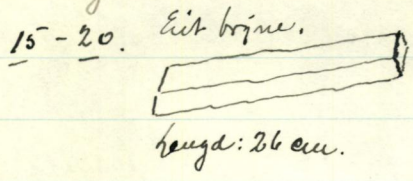 15-20. Eit brýne.
Lengd: 26 cm.